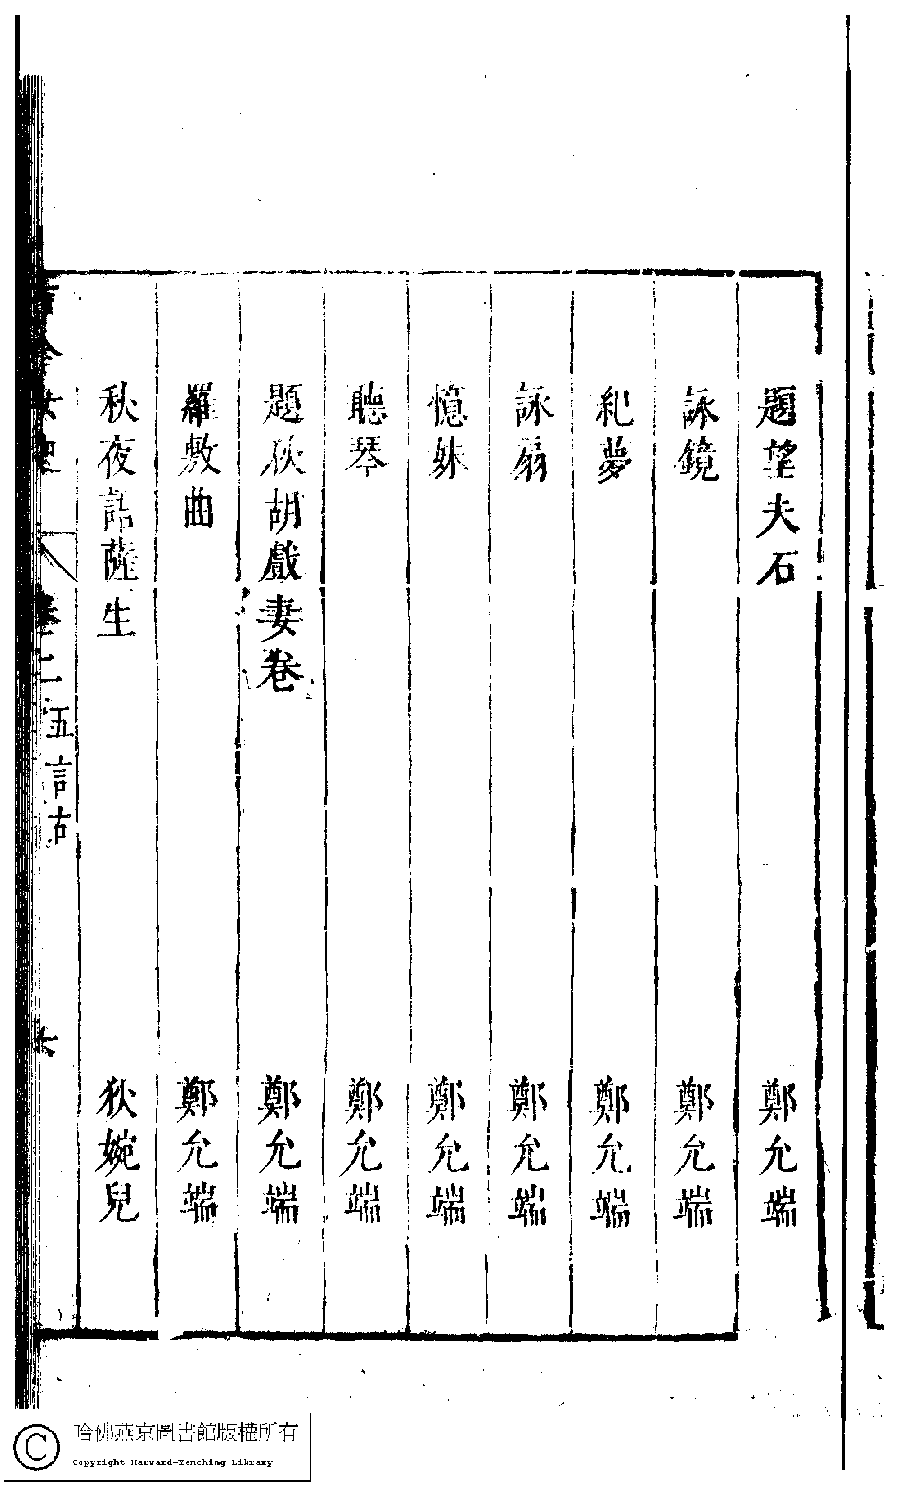 題望夫石 鄭允端
詠鏡 鄭允端
紀夢 鄭允端
詠扇 鄭允端
憶妹 鄭允端
聽琴 鄭允端
題秋胡戲妻卷 鄭允端
羅敷曲 鄭允端
秋夜詒薩生 狄婉兒
卷二 五言古 六
哈佛燕京圖書館版權所有
Copyright Harvard-Yenching Library